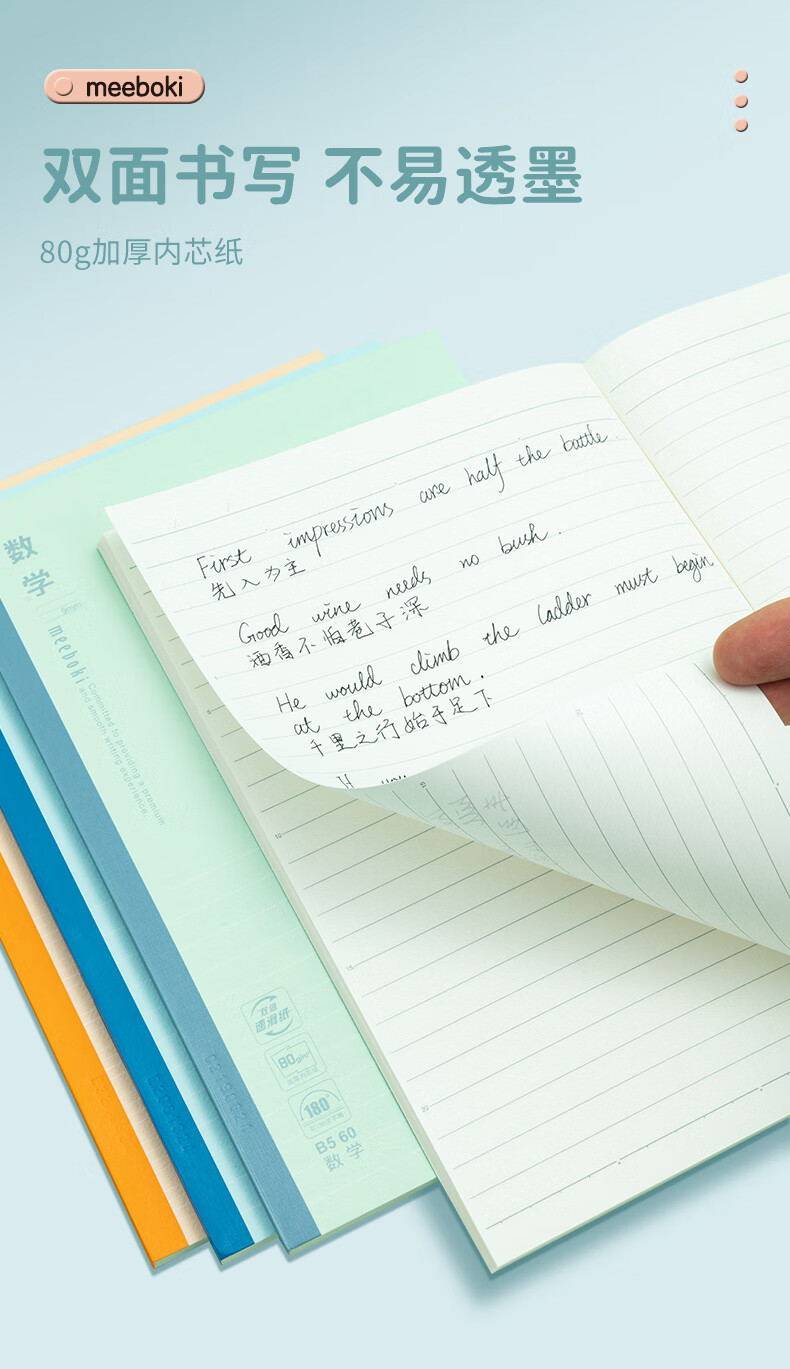 meeboki
双面书写 不易透墨
80g加厚内芯纸
First impressions are half the battle.
先入为主
Good wine needs no bush.
酒香不怕巷子深
He would climb the ladder must begin
at the bottom.
千里之行始于足下
If you
数学
9mm
meeboki
Committed to providing a premium
and smooth writing experience.
5
10
15
20
双面
速滑纸
80g/m²
180°
B5 60
数学